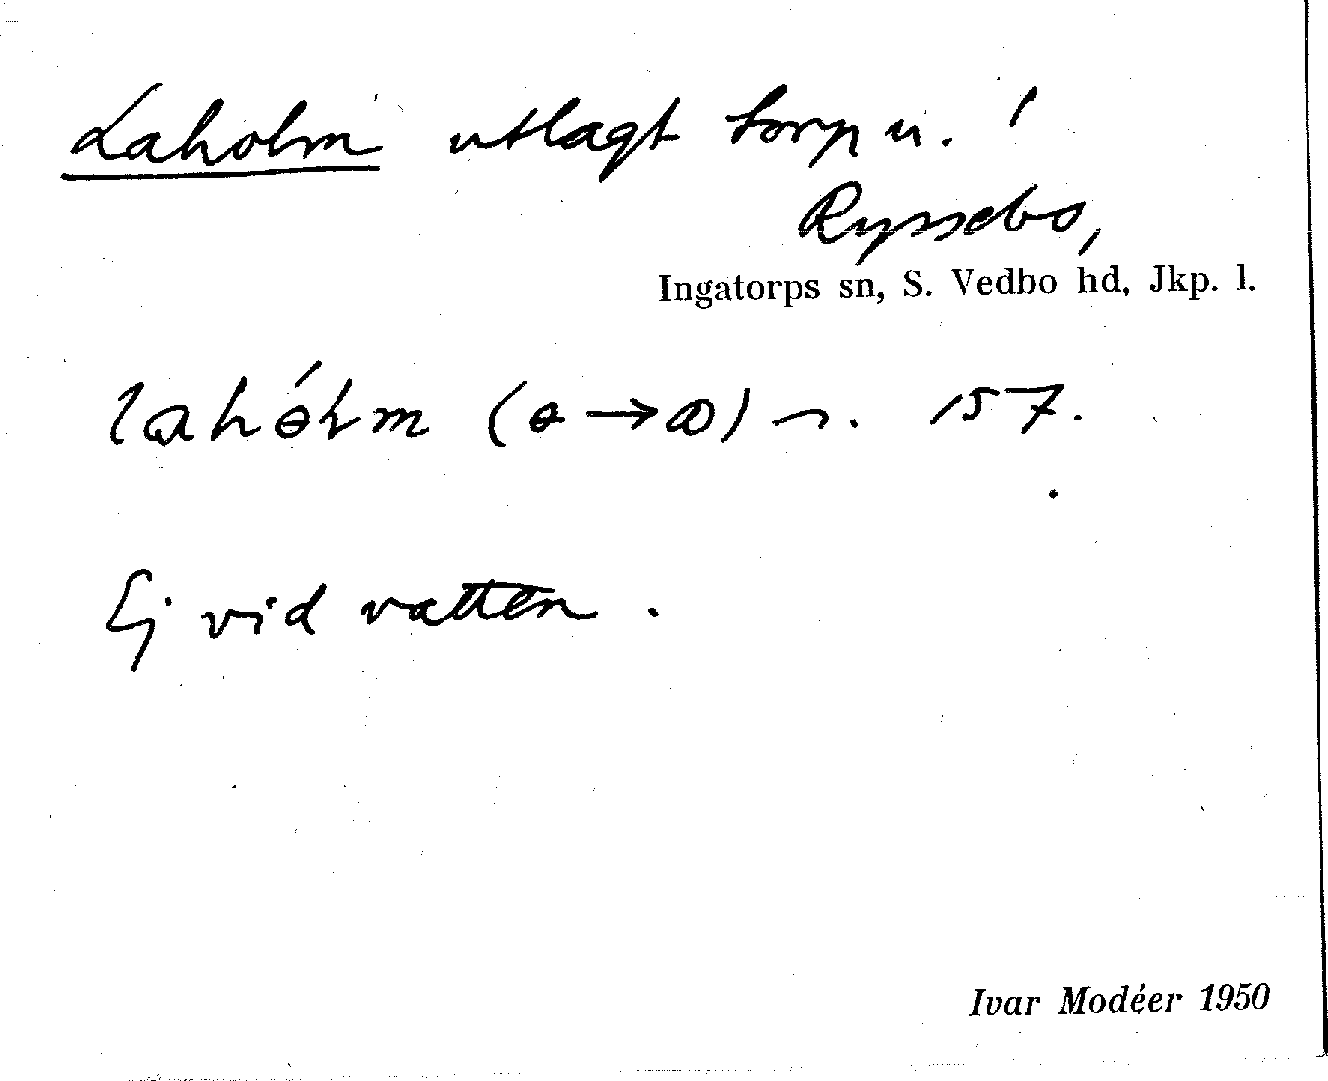 Laholm utlagt torp u.
Ryssebo,
Ingatorps sn, S. Vedbo hd, Jkp. l.
157.
Ej vid vatten.
Ivar Modéer 1950